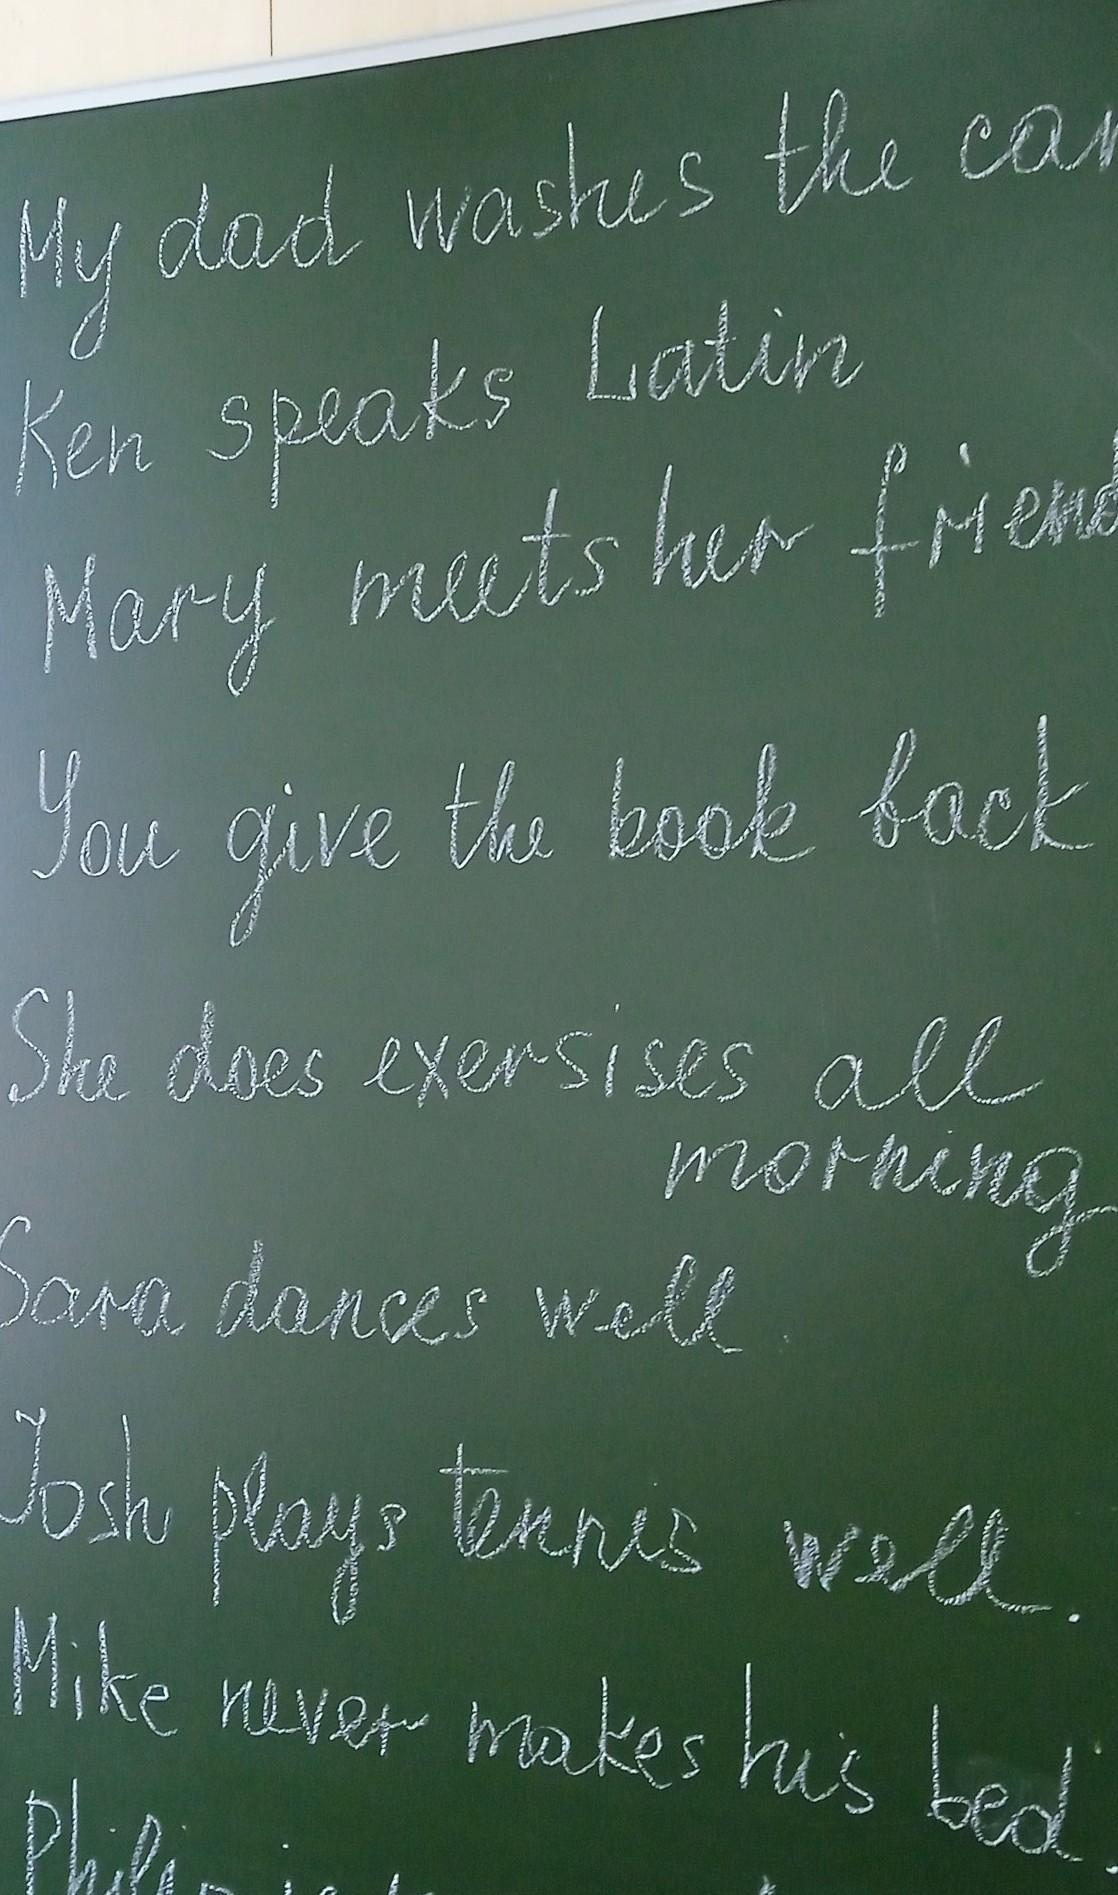 My dad washes the car
Ken speaks Latin
Mary meets her friend
You give the book back
She does exersises all
morning
Sara dances well.
Josh plays tennis well.
Mike never makes his bed.